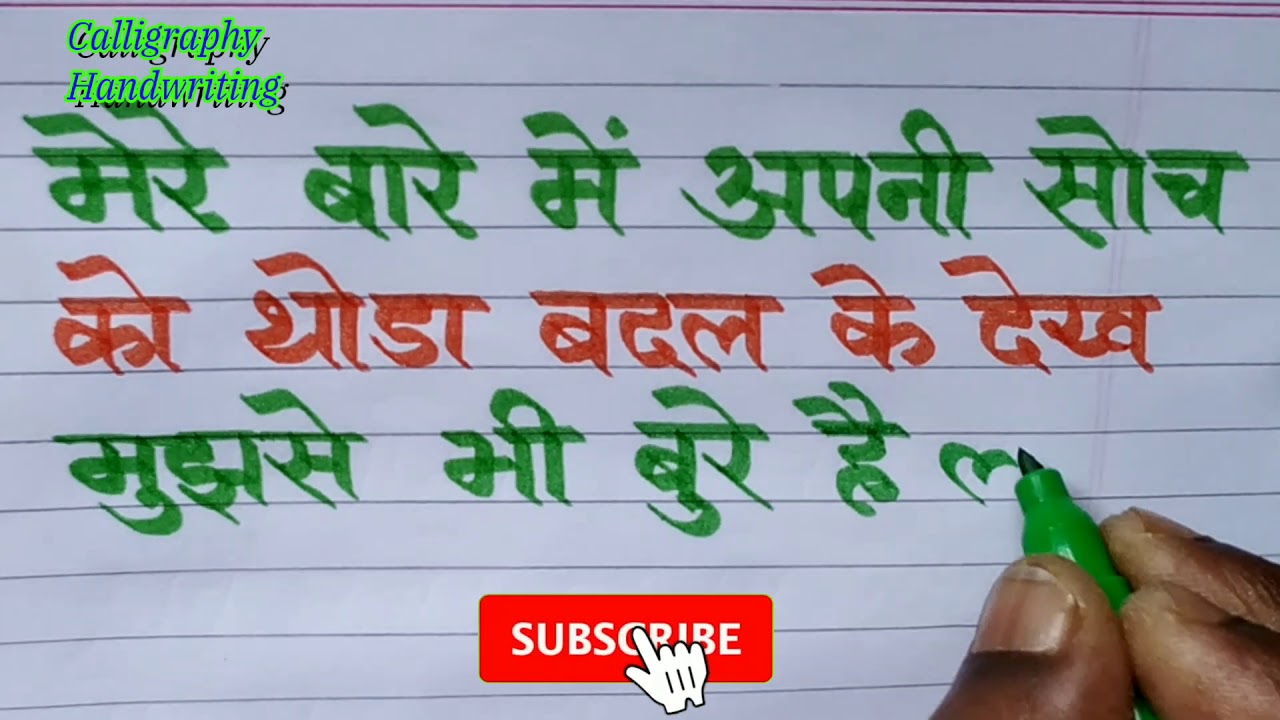 Calligraphy
Handwriting
मेरे बारे में अपनी सोच
को थोडा बदल के देख
मुझसे भी बुरे है
SUBSCRIBE